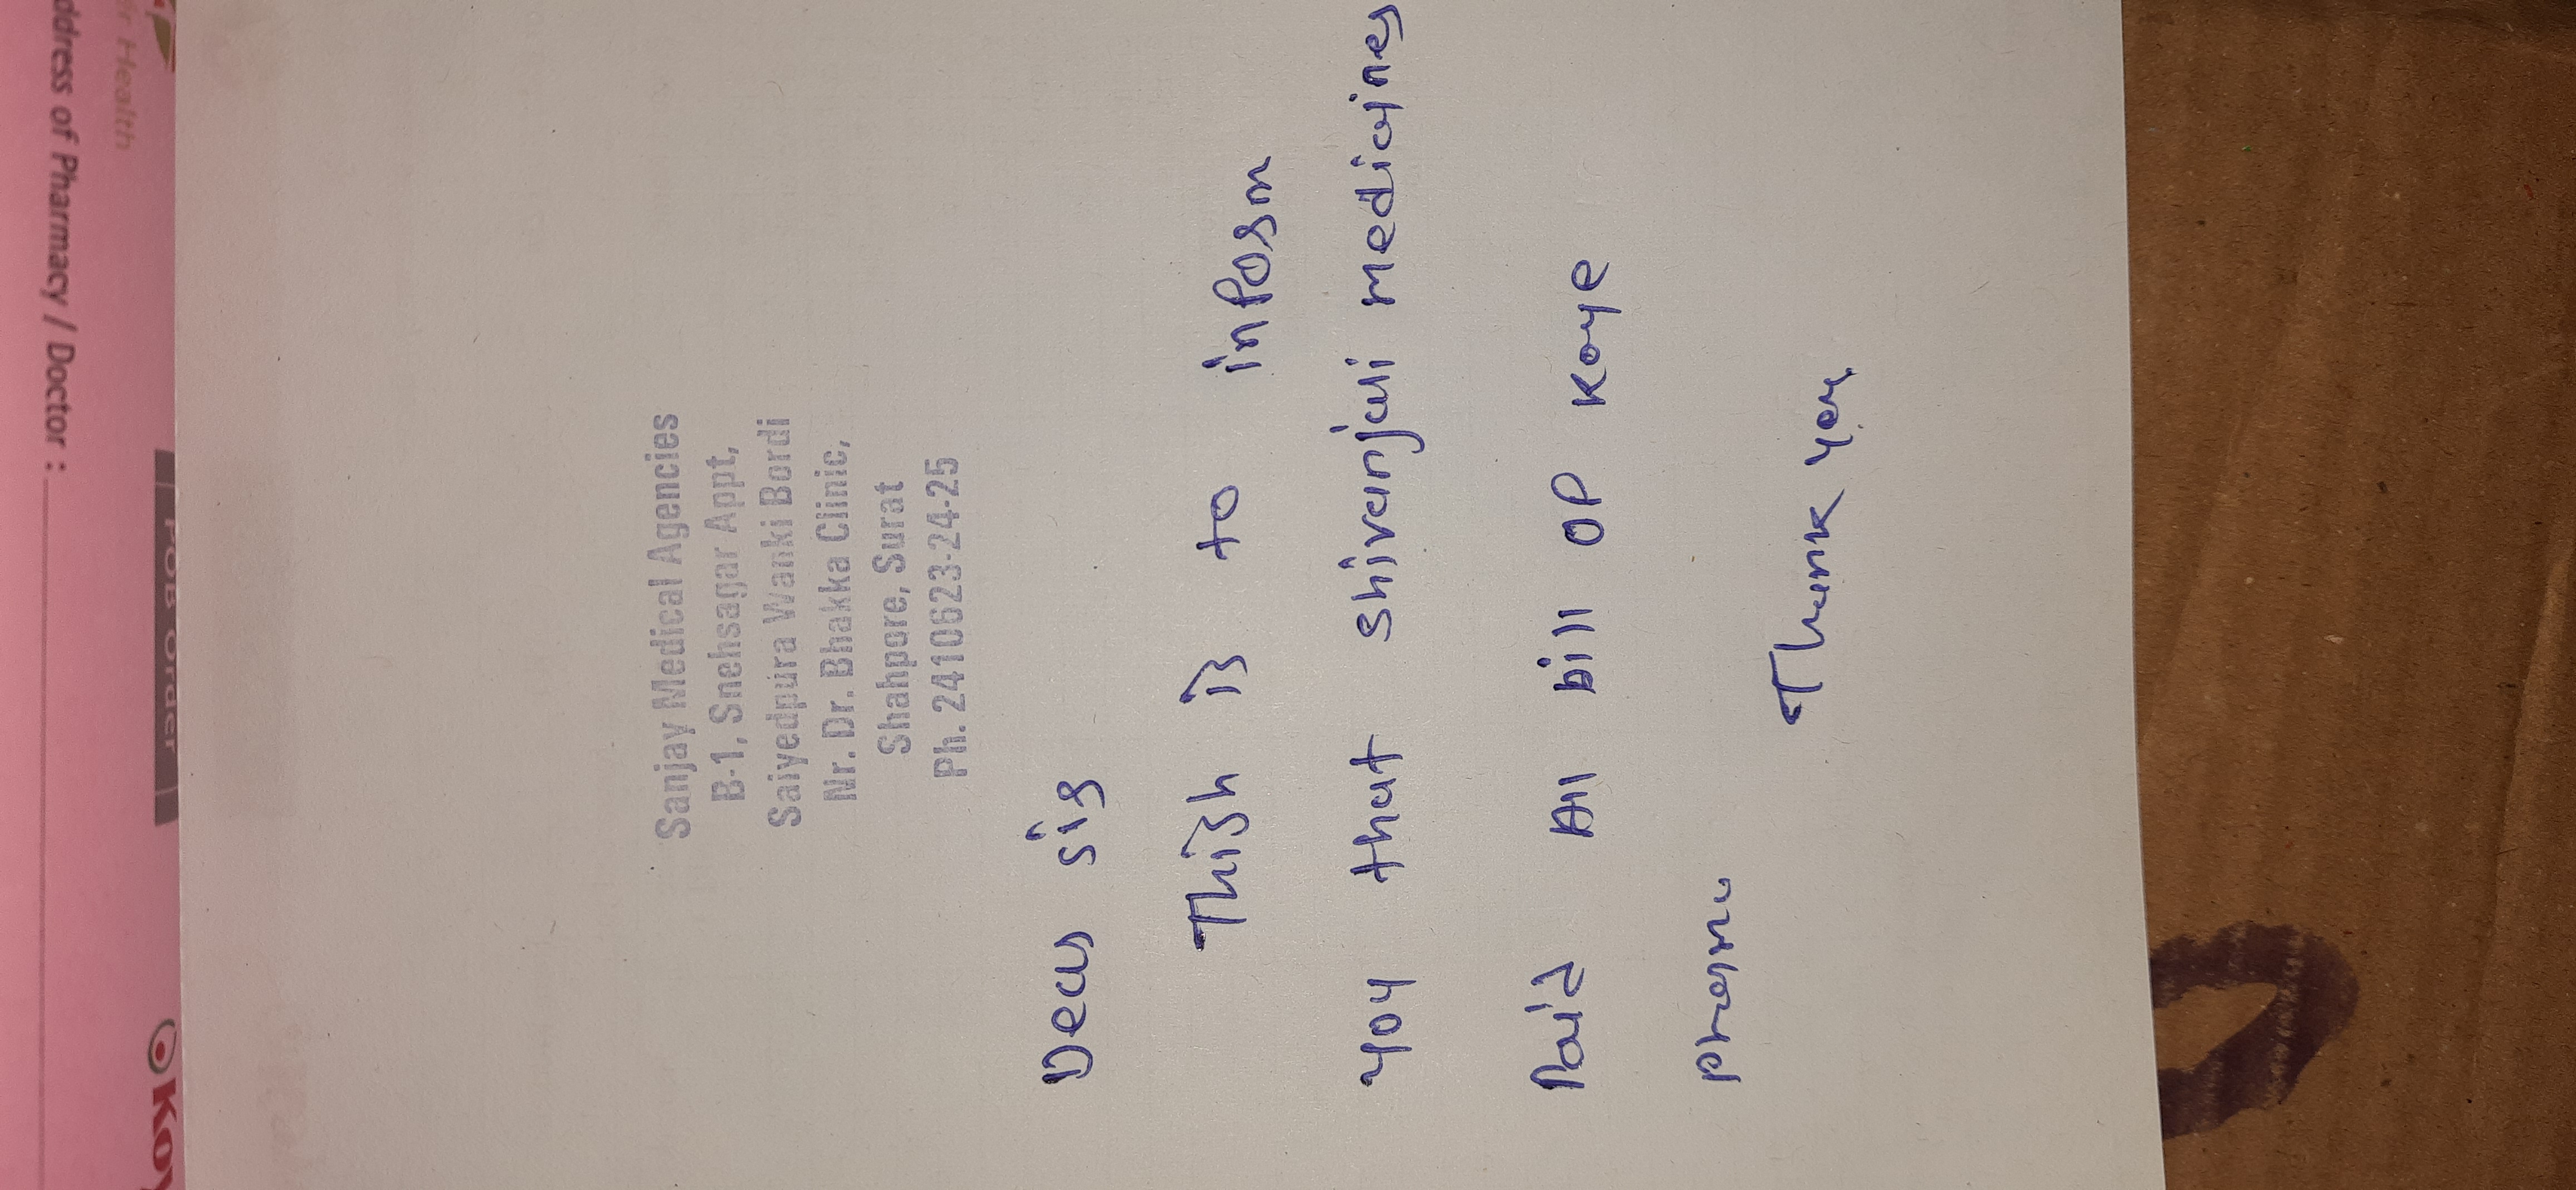 Sanjay Medical Agencies
B-1, Snehsagar Appt,
Saiyedpura Wanki Bordi
Nr. Dr. Bhakka Clinic,
Shahpore, Surat
Ph. 2410623-24-25
Dear sir
Thish is to inform
you that shivanjali medicines
Paid All bill of Koye
pharma
Thank you
ddress of Pharmacy / Doctor :
or Health
POB Order